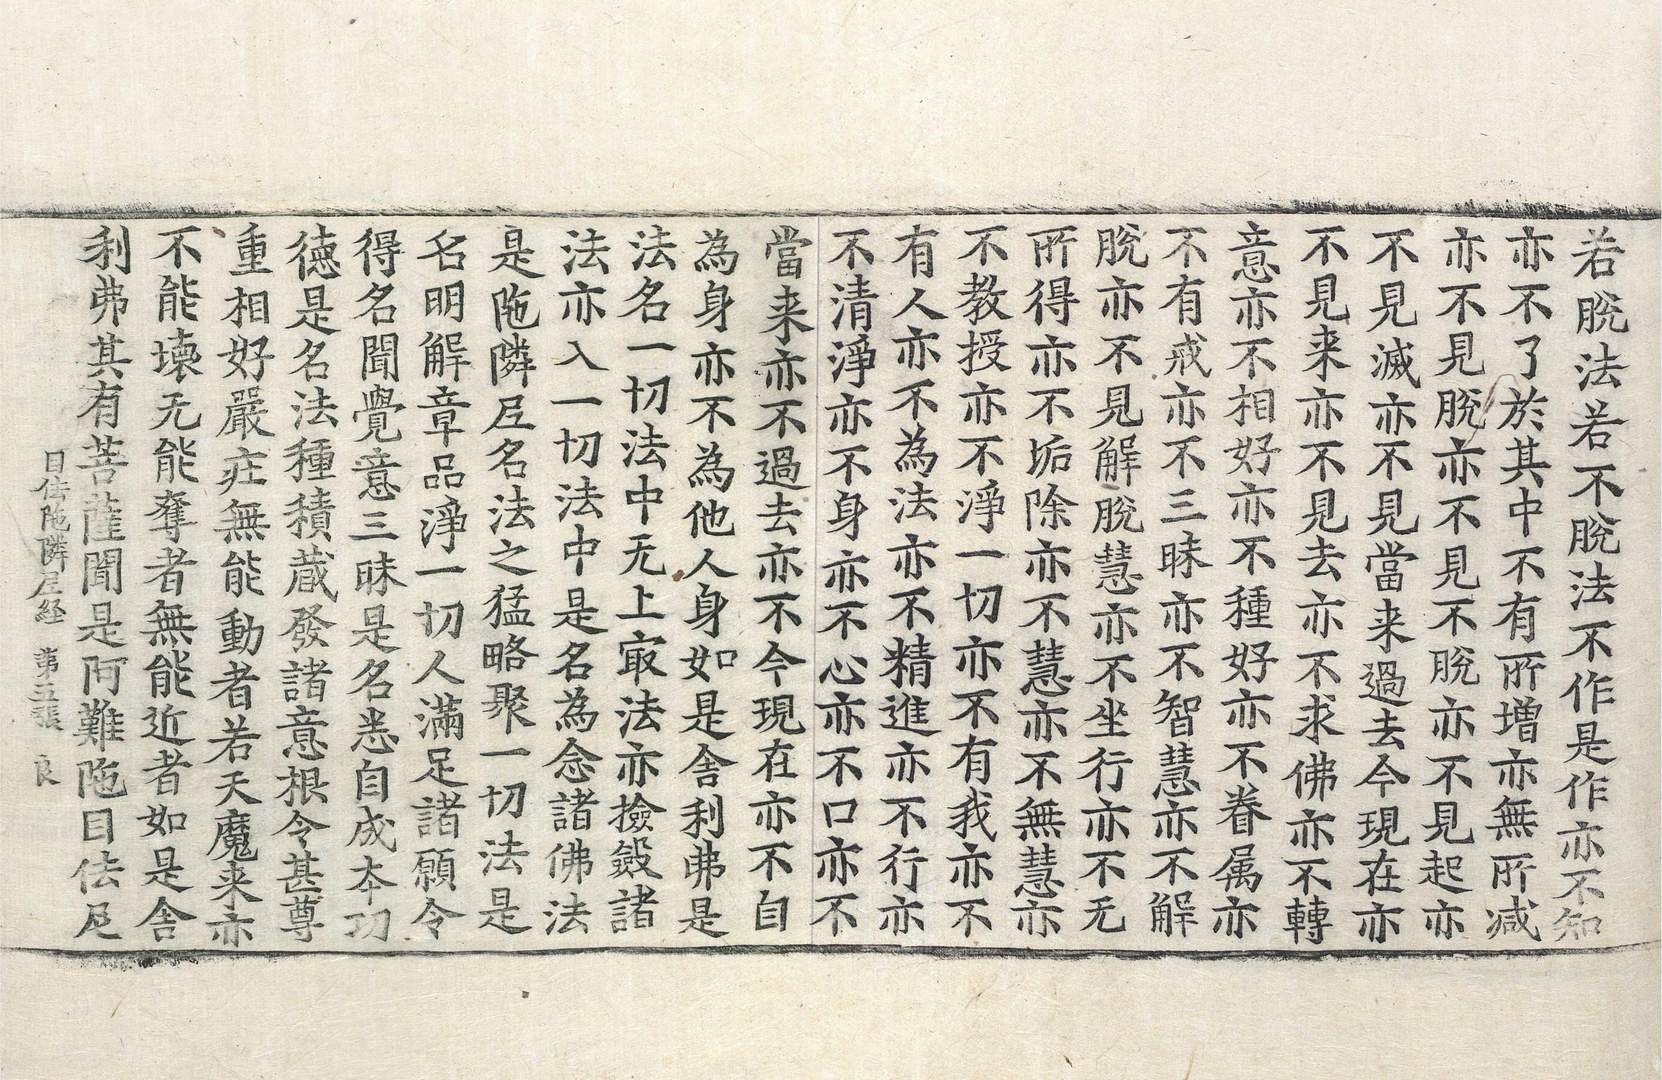 若脫法若不脫法不作是作亦不知
亦不了於其中不有所增亦無所減
亦不見脫亦不見不脫亦不見起亦
不見滅亦不見當来過去今現在亦
不見来亦不見去亦不求佛亦不轉
意亦不相好亦不種好亦不眷属亦
不有戒亦不三昧亦不智慧亦不解
脫亦不見解脫慧亦不坐行亦不无
所得亦不垢除亦不慧亦不無慧亦
不教授亦不淨一切亦不有我亦不
有人亦不為法亦不精進亦不行亦
不清淨亦不身亦不心亦不口亦不
當来亦不過去亦不今現在亦不自
為身亦不為他人身如是舍利弗是
法名一切法中无上㝡法亦撿斂諸
法亦入一切法中是名為念諸佛法
是陁隣尼名法之猛略聚一切法是
名明解章品淨一切人滿足諸願令
得名聞覺意三昧是名悉自成夲功
德是名法種積蔵發諸意根令甚尊
重相好嚴庄無能動者若天魔来亦
不能壞无能奪者無能近者如是舍
利弗其有菩薩聞是阿難陁目佉尼
目佉陁隣尼経 第五張 良